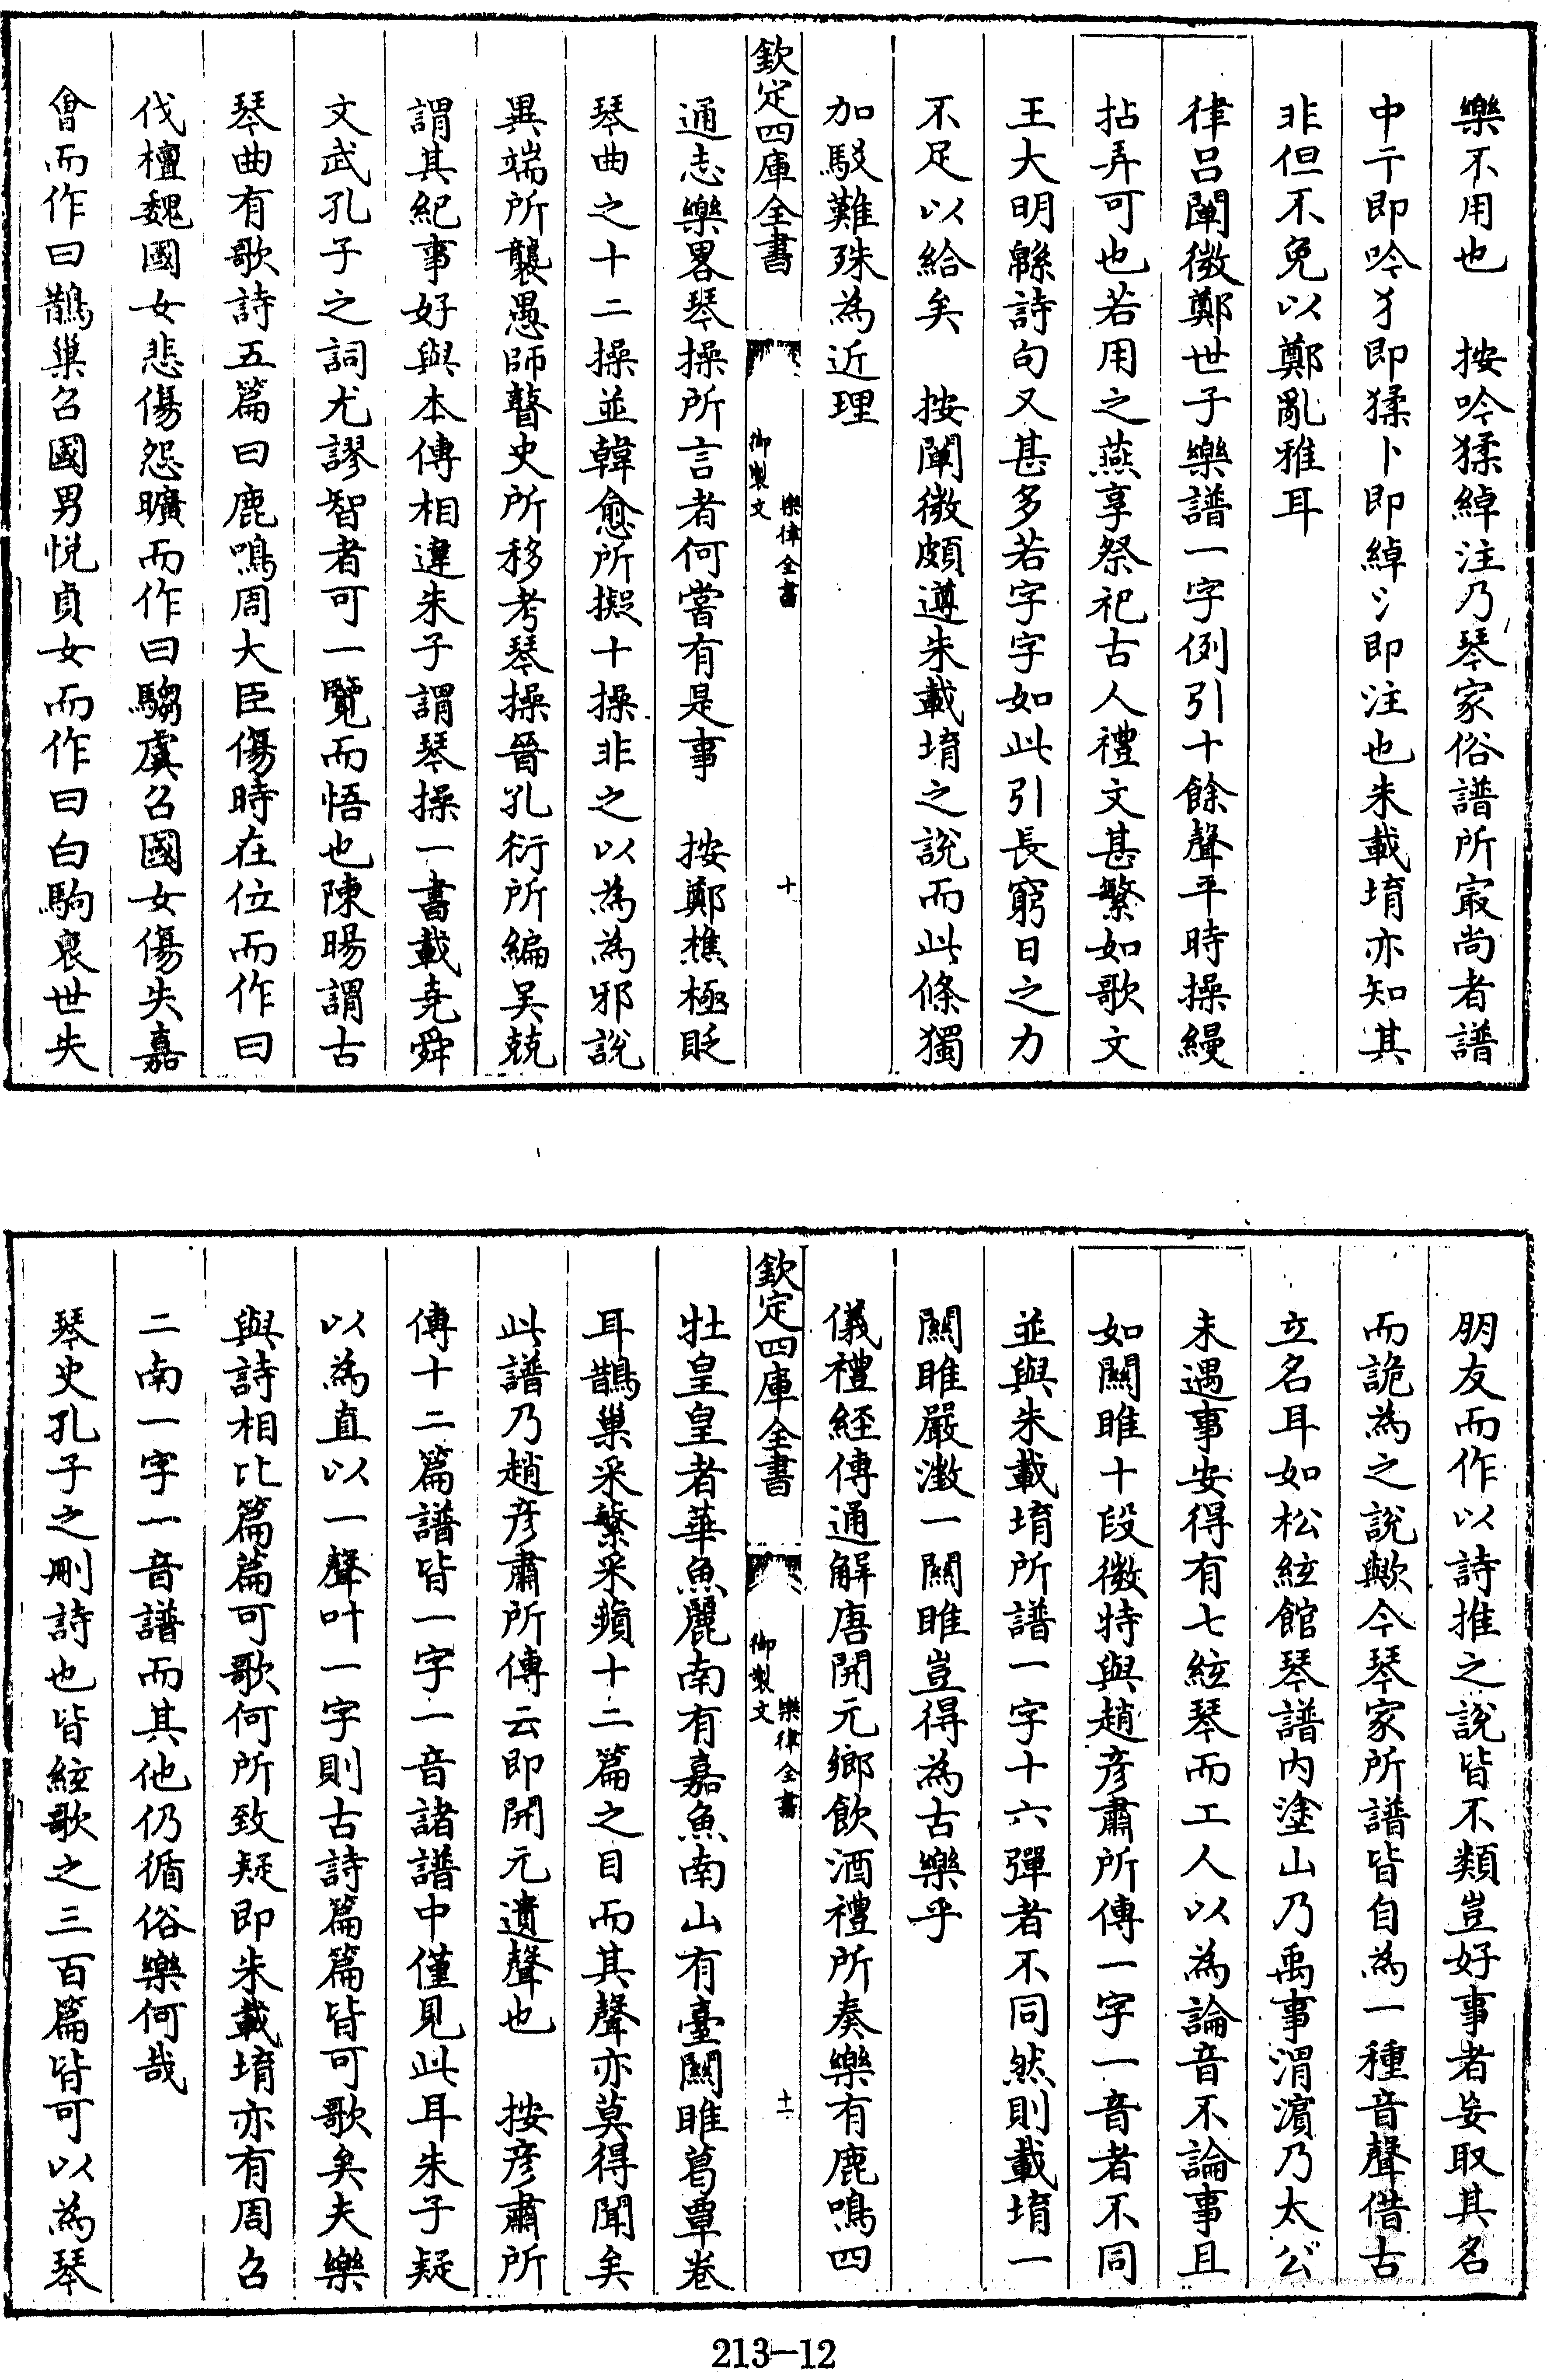 樂不用也　按吟猱綽注乃琴家俗譜所㝡尚者譜
中亍即吟犭即猱卜即綽氵即注也朱載堉亦知其
非但不免以鄭亂雅耳
律吕闡微鄭世子樂譜一字例引十餘聲平時操縵
拈弄可也若用之燕享祭祀古人禮文甚繁如歌文
王大明緜詩句又甚多若字字如此引長窮日之力
不足以給矣　按闡微頗遵朱載堉之說而此條獨
加駁難殊為近理
欽定四庫全書
御製文
樂律全書
十
通志樂畧琴操所言者何嘗有是事　按鄭樵極貶
琴曲之十二操並韓愈所擬十操非之以為為邪說
異端所襲愚師瞽史所移考琴操晉孔衍所編吴兢
謂其紀事好與本傳相違朱子謂琴操一書載堯舜
文武孔子之詞尤謬智者可一覽而悟也陳暘謂古
琴曲有歌詩五篇曰鹿鳴周大臣傷時在位而作曰
伐檀魏國女悲傷怨曠而作曰騶虞召國女傷失嘉
會而作曰鵲巢召國男悅貞女而作曰白駒衰世失
朋友而作以詩推之說皆不類豈好事者妄取其名
而詭為之說歟今琴家所譜皆自為一種音聲借古
立名耳如松絃館琴譜内塗山乃禹事渭濱乃太公
未遇事安得有七絃琴而工人以為論音不論事且
如關雎十段微特與趙彦肅所傳一字一音者不同
並與朱載堉所譜一字十六彈者不同然則載堉一
關雎嚴澂一關雎豈得為古樂乎
儀禮經傳通解唐開元鄉飲酒禮所奏樂有鹿鳴四
欽定四庫全書
御製文
樂律全書
十一
牡皇皇者華魚麗南有嘉魚南山有臺關雎葛覃卷
耳鵲巢采蘩采蘋十二篇之目而其聲亦莫得聞矣
此譜乃趙彦肅所傳云即開元遺聲也　按彦肅所
傳十二篇譜皆一字一音諸譜中僅見此耳朱子疑
以為直以一聲叶一字則古詩篇篇皆可歌矣夫樂
與詩相比篇篇可歌何所致疑即朱載堉亦有周召
二南一字一音譜而其他仍循俗樂何哉
琴史孔子之刪詩也皆絃歌之三百篇皆可以為琴
213-12